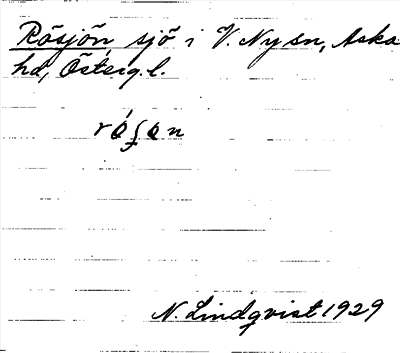 Rösjön, sjö i V. Ny sn, Aska
hd, Östergl.
N. Lindqvist 1929